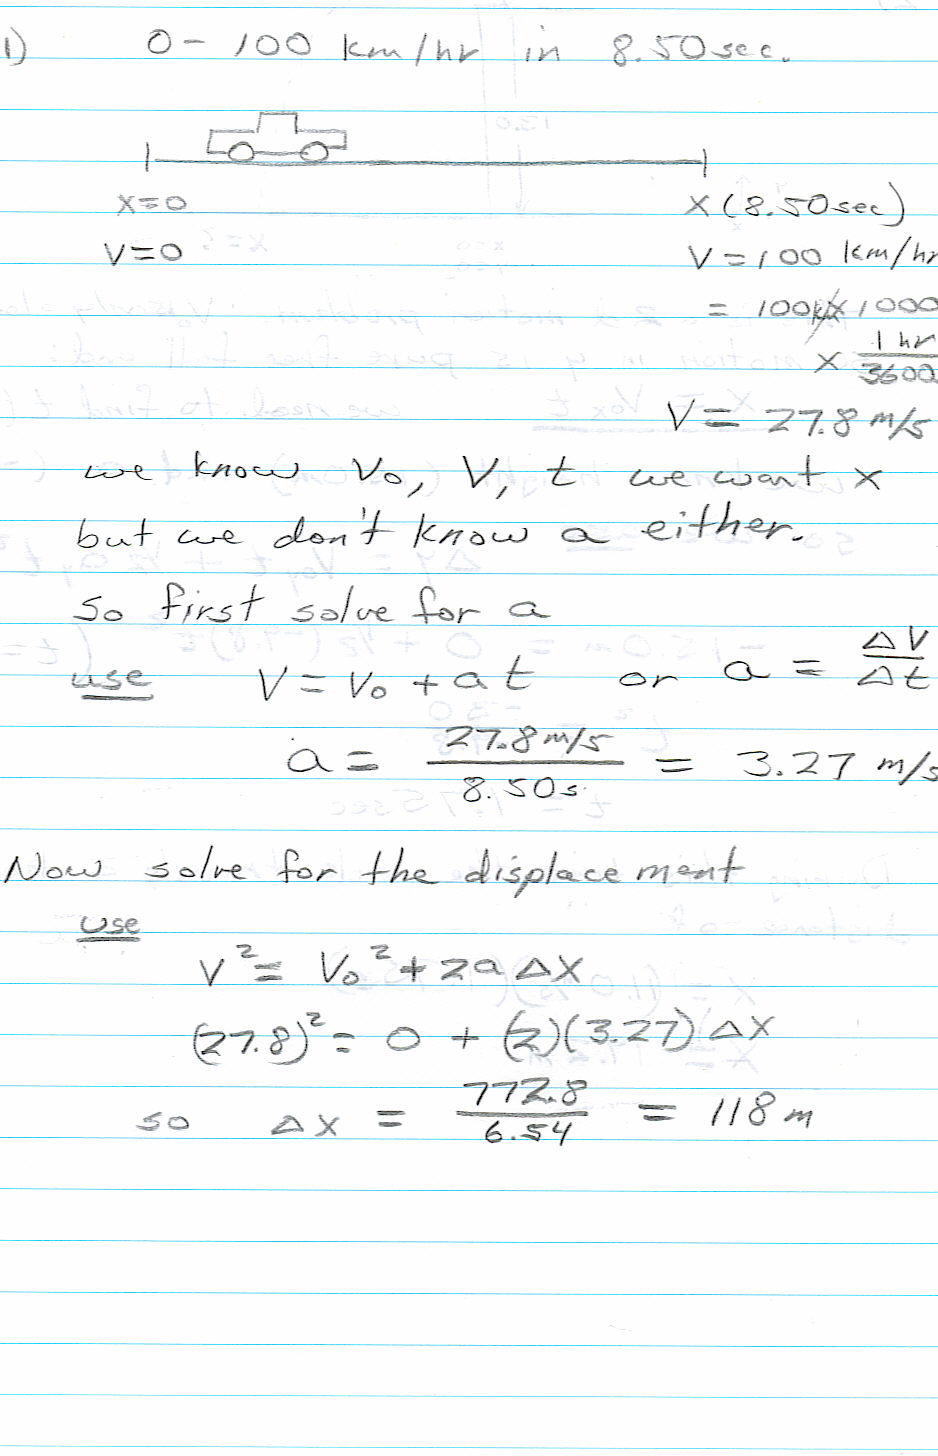 1) 0 - 100 km/hr in 8.50 sec.
x=0 x(8.50sec)
v=0 v = 100 km/hr
= 100 km x 1000
x 1 hr / 3600
V = 27.8 m/s
we know Vo, V, t we want x
but we don't know a either.
So first solve for a
use V = Vo + at or a = ΔV/Δt
a = 27.8 m/s / 8.50s = 3.27 m/s
Now solve for the displacement
use
V² = Vo² + 2a ΔX
(27.8)² = 0 + (2)(3.27) ΔX
so ΔX = 772.8 / 6.54 = 118 m